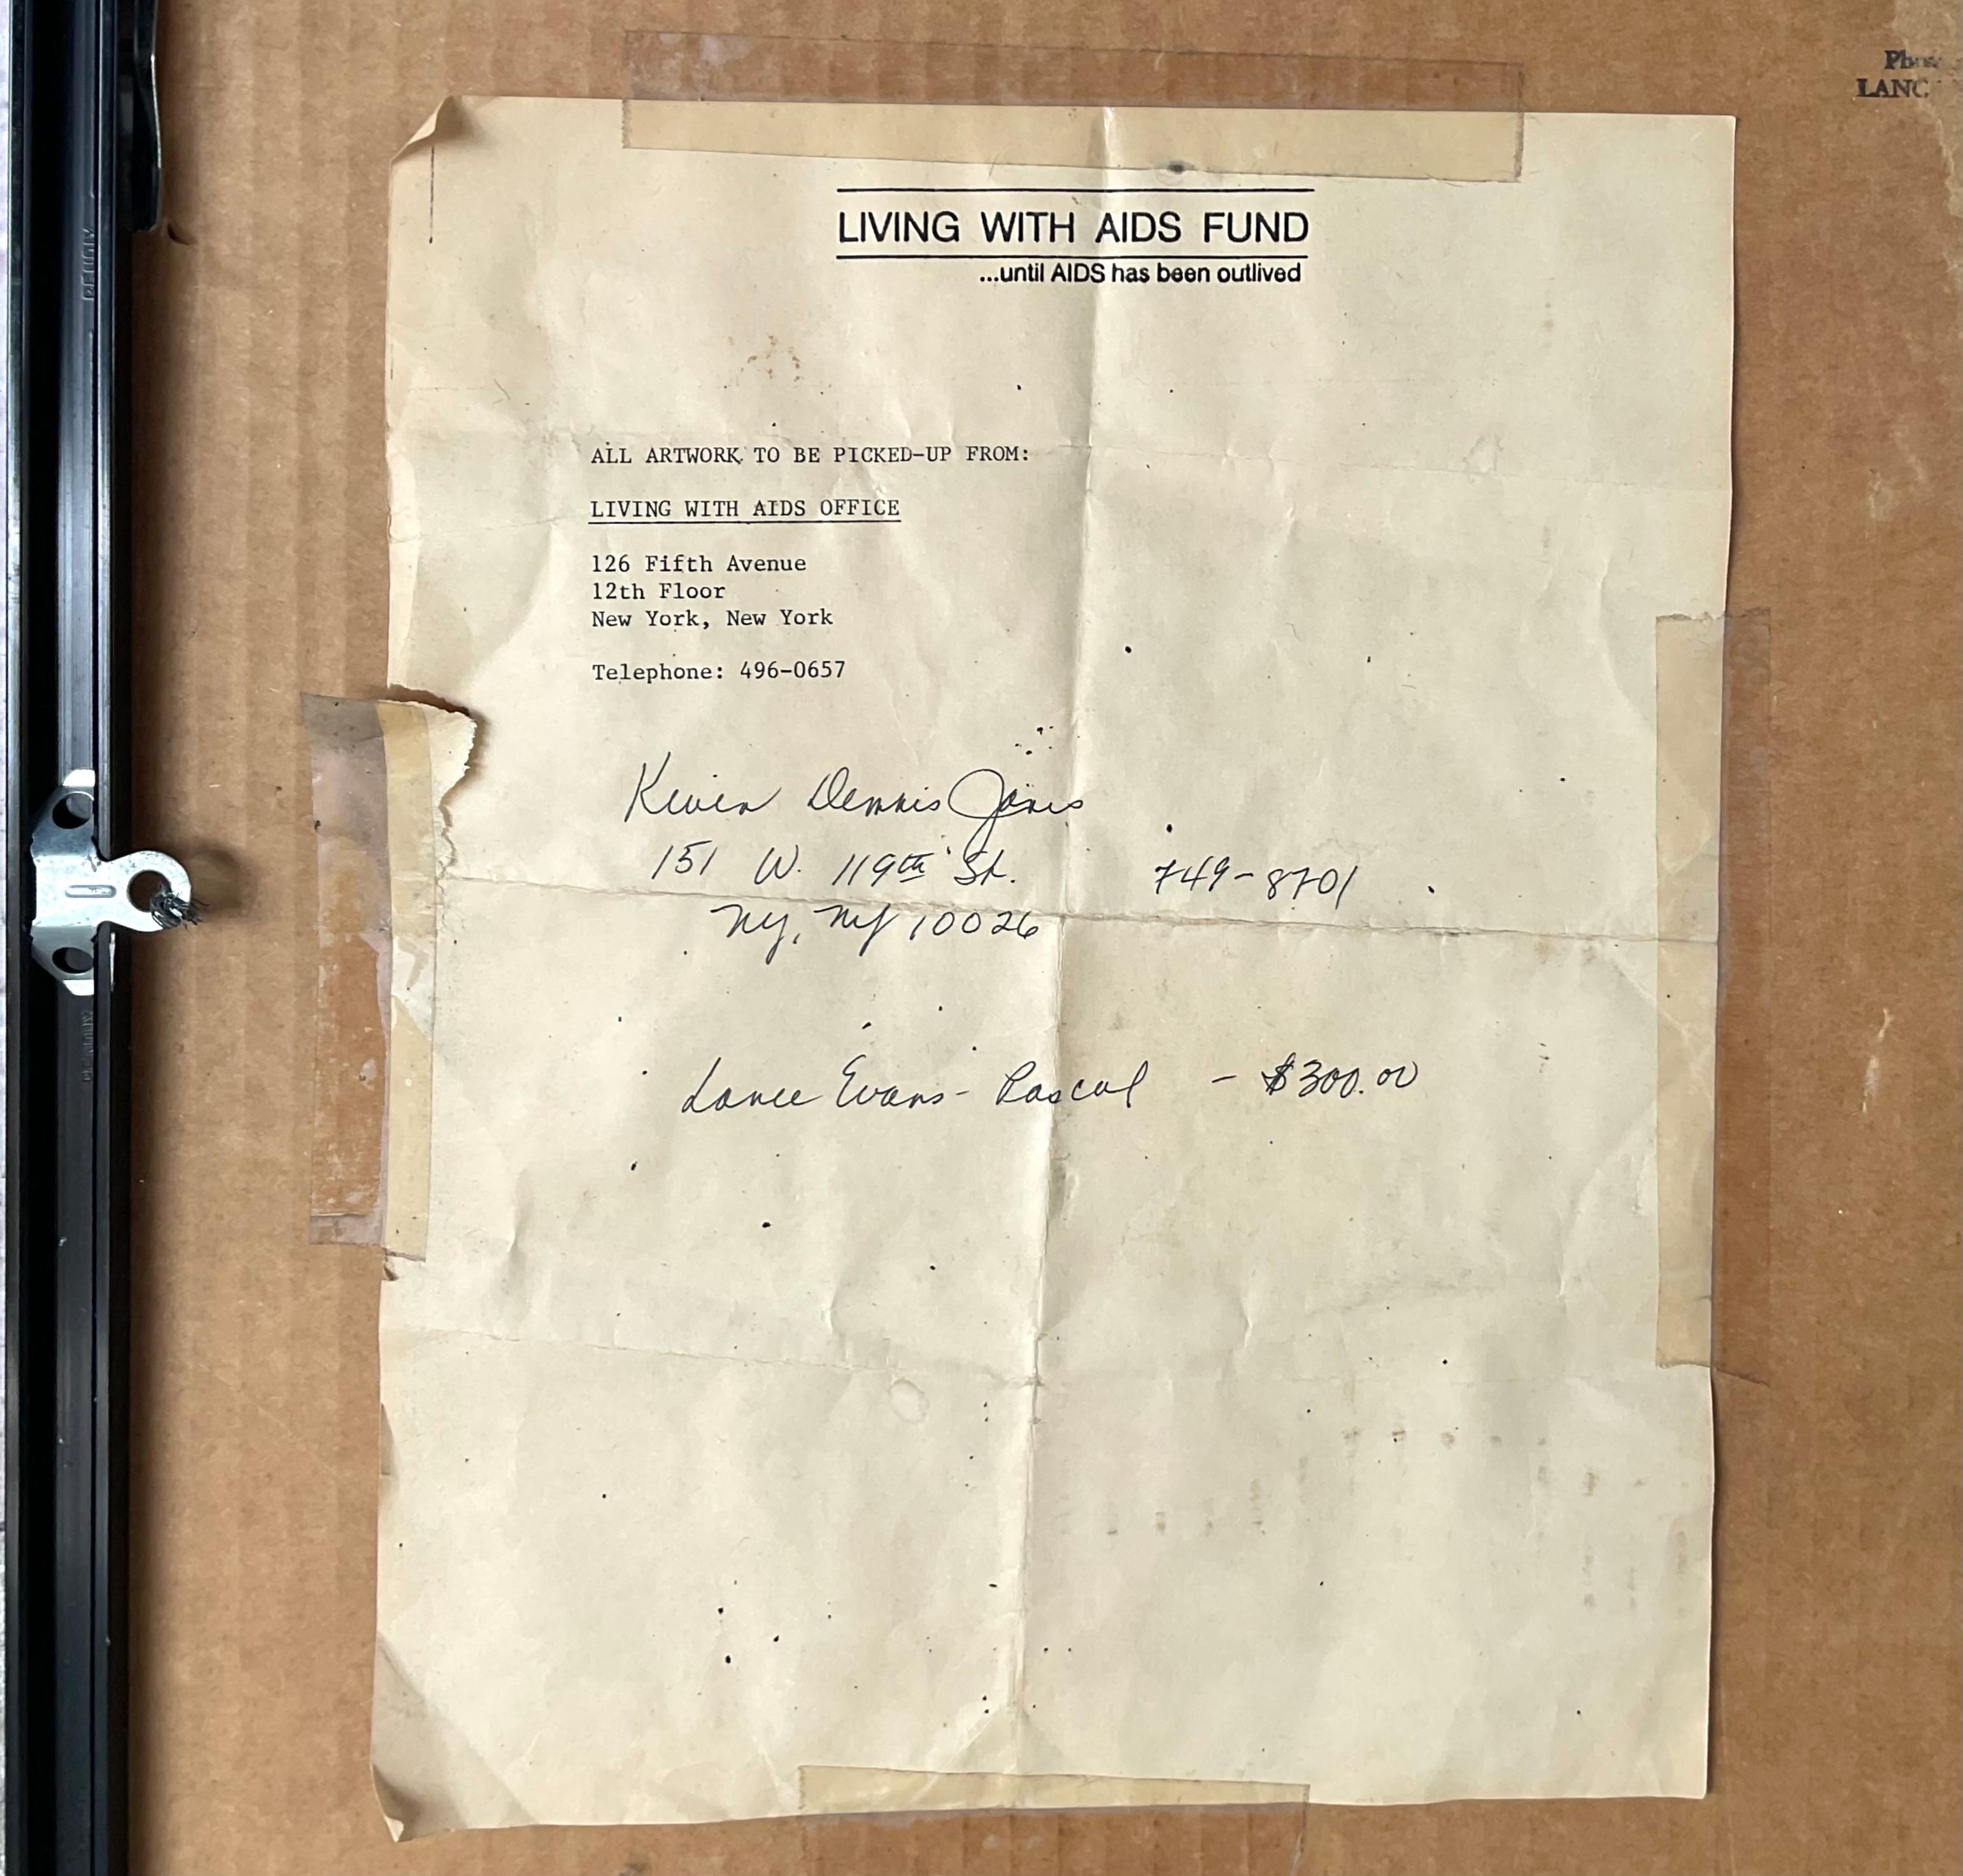 LANC
LIVING WITH AIDS FUND
...until AIDS has been outlived
ALL ARTWORK TO BE PICKED-UP FROM:
LIVING WITH AIDS OFFICE
126 Fifth Avenue
12th Floor
New York, New York
Telephone: 496-0657
Kevin Dennis Jones
151 W. 119th St. 749-8701
NY, NY 10026
Lance Evans - Pascal - $300.00